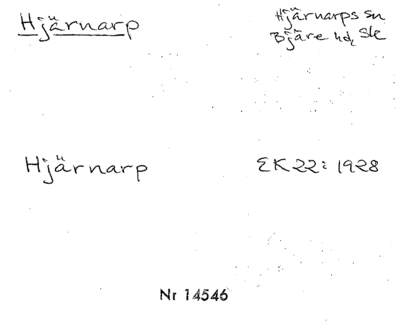 Hjärnarp
Hjärnarps sn
Bjäre hd, Sk
Hjärnarp
EK 22: 1928
Nr 14546